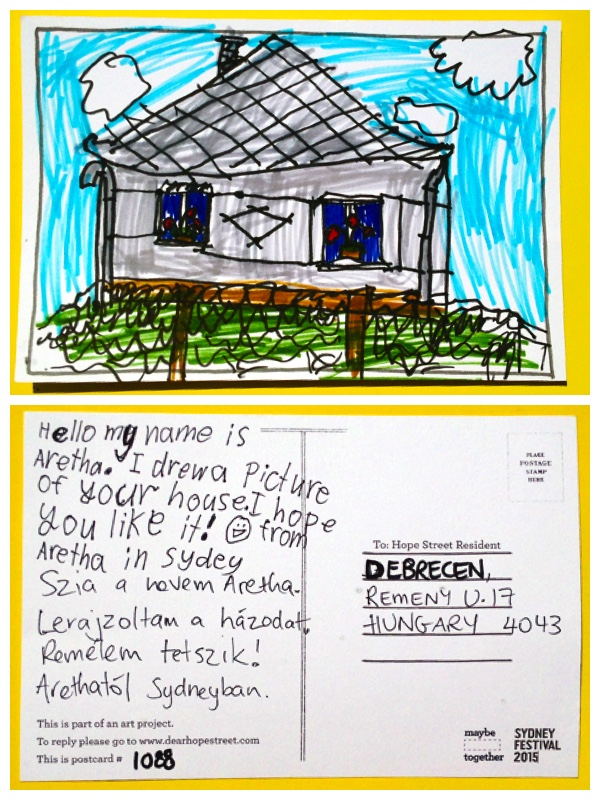 Hello my name is
Aretha. I drew a Picture
of your house. I hope
you like it! from
Aretha in Sydey
Szia a nevem Aretha.
Lerajzoltam a házodat.
Remélem tetszik!
Arethától Sydneyban.
This is part of an art project.
To reply please go to www.dearhopestreet.com
This is postcard # 1088
PLACE
POSTAGE
STAMP
HERE
To: Hope Street Resident
DEBRECEN,
REMENY U. 17
HUNGARY 4043
maybe
together
SYDNEY
FESTIVAL
2015